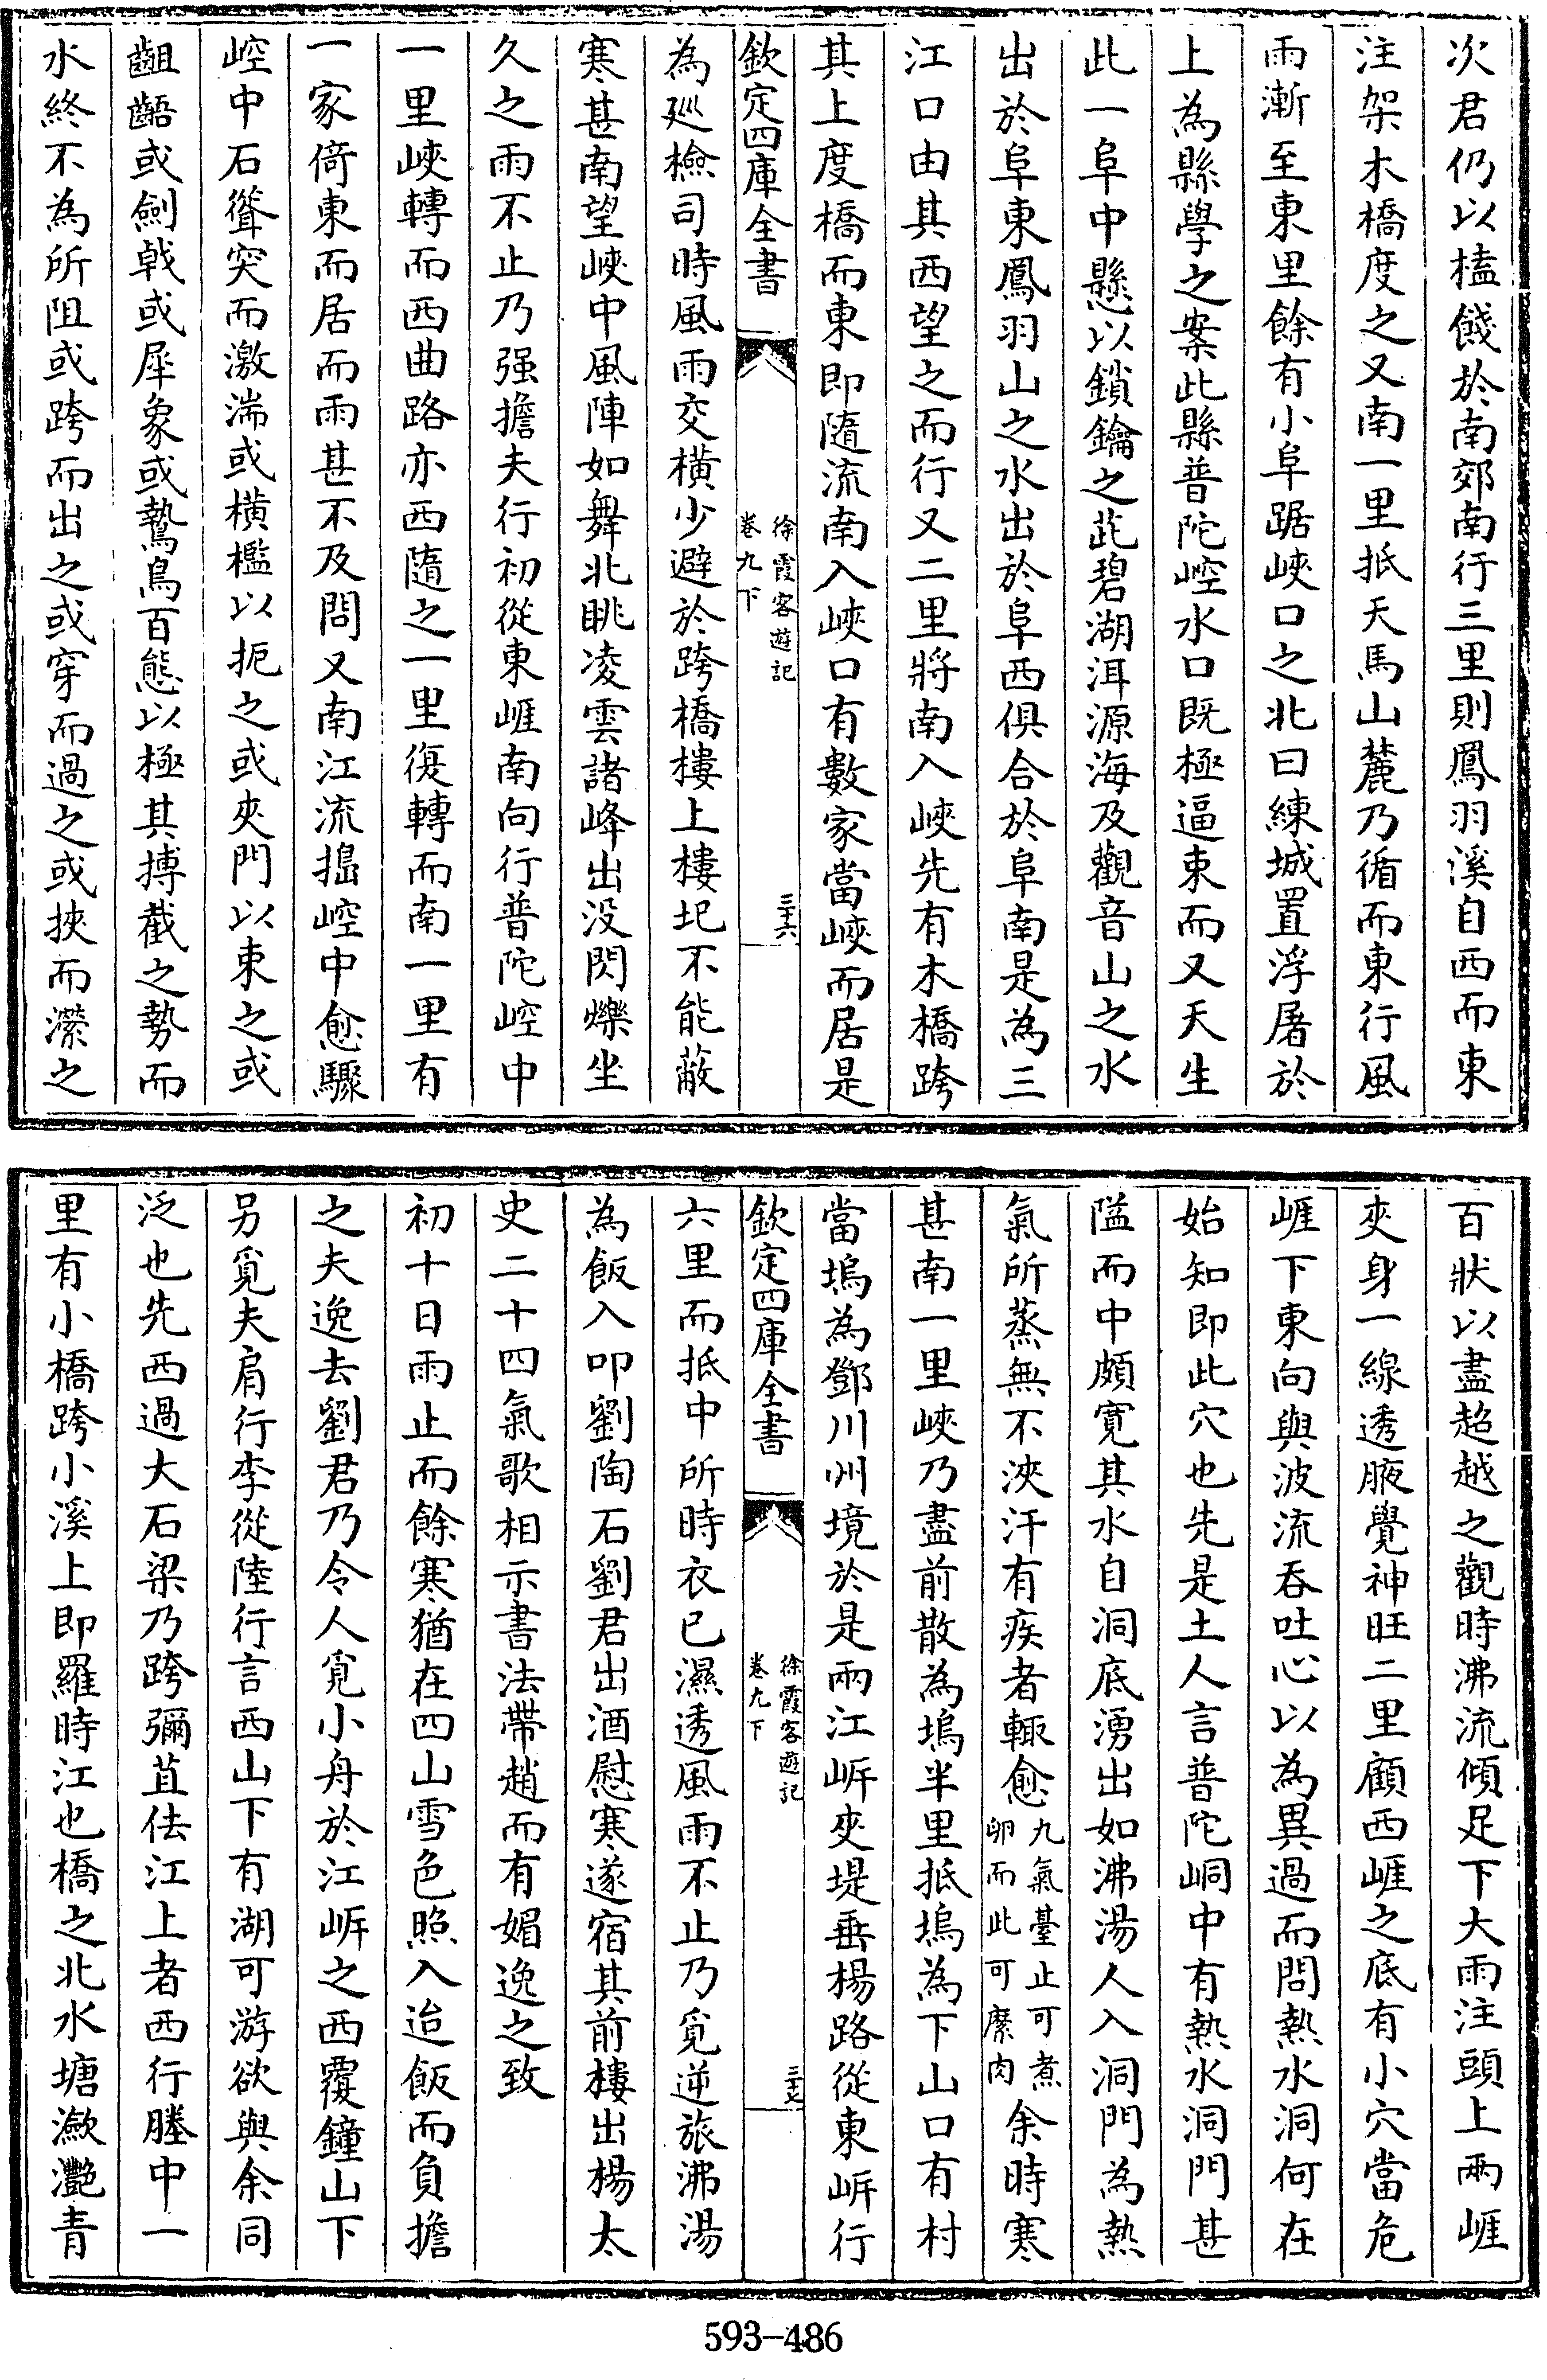 次君仍以榼餞於南郊南行三里則鳳羽溪自西而東
注架木橋度之又南一里抵天馬山麓乃循而東行風
雨漸至東里餘有小阜踞峽口之北曰練城置浮屠於
上為縣學之案此縣普陀崆水口既極逼束而又天生
此一阜中懸以鎖鑰之茈碧湖洱源海及觀音山之水
出於阜東鳳羽山之水出於阜西俱合於阜南是為三
江口由其西望之而行又二里將南入峽先有木橋跨
其上度橋而東即隨流南入峽口有數家當峽而居是
欽定四庫全書
徐霞客遊記
卷九下
三十六
為廵檢司時風雨交横少避於跨橋樓上樓圮不能蔽
寒甚南望峽中風陣如舞北眺凌雲諸峰出没閃爍坐
久之雨不止乃强擔夫行初從東崕南向行普陀崆中
一里峽轉而西曲路亦西隨之一里復轉而南一里有
一家倚東而居而雨甚不及問又南江流搗崆中愈驟
崆中石聳突而激湍或横檻以扼之或夾門以束之或
齟齬或劍戟或犀象或鷙鳥百態以極其搏截之勢而
水終不為所阻或跨而出之或穿而過之或挾而瀠之
百狀以盡超越之觀時沸流傾足下大雨注頭上兩崕
夾身一線透腋覺神旺二里顧西崕之底有小穴當危
崕下東向與波流吞吐心以為異過而問熱水洞何在
始知即此穴也先是土人言普陀峒中有熱水洞門甚
隘而中頗寛其水自洞底湧出如沸湯人入洞門為熱
氣所蒸無不浹汗有疾者輙愈九氣臺止可煮卵而此可縻肉余時寒
甚南一里峽乃盡前散為塢半里抵塢為下山口有村
當塢為鄧川州境於是兩江岍夾堤垂楊路從東岍行
欽定四庫全書
徐霞客遊記
卷九下
三十七
六里而抵中所時衣已濕透風雨不止乃覓逆旅沸湯
為飯入叩劉陶石劉君出酒慰寒遂宿其前樓出楊太
史二十四氣歌相示書法帶趙而有媚逸之致
初十日雨止而餘寒猶在四山雪色照入迨飯而負擔
之夫逸去劉君乃令人覓小舟於江岍之西覆鐘山下
另覓夫肩行李從陸行言西山下有湖可游欲與余同
泛也先西過大石梁乃跨彌苴佉江上者西行塍中一
里有小橋跨小溪上即羅時江也橋之北水塘瀲灧青
593-486